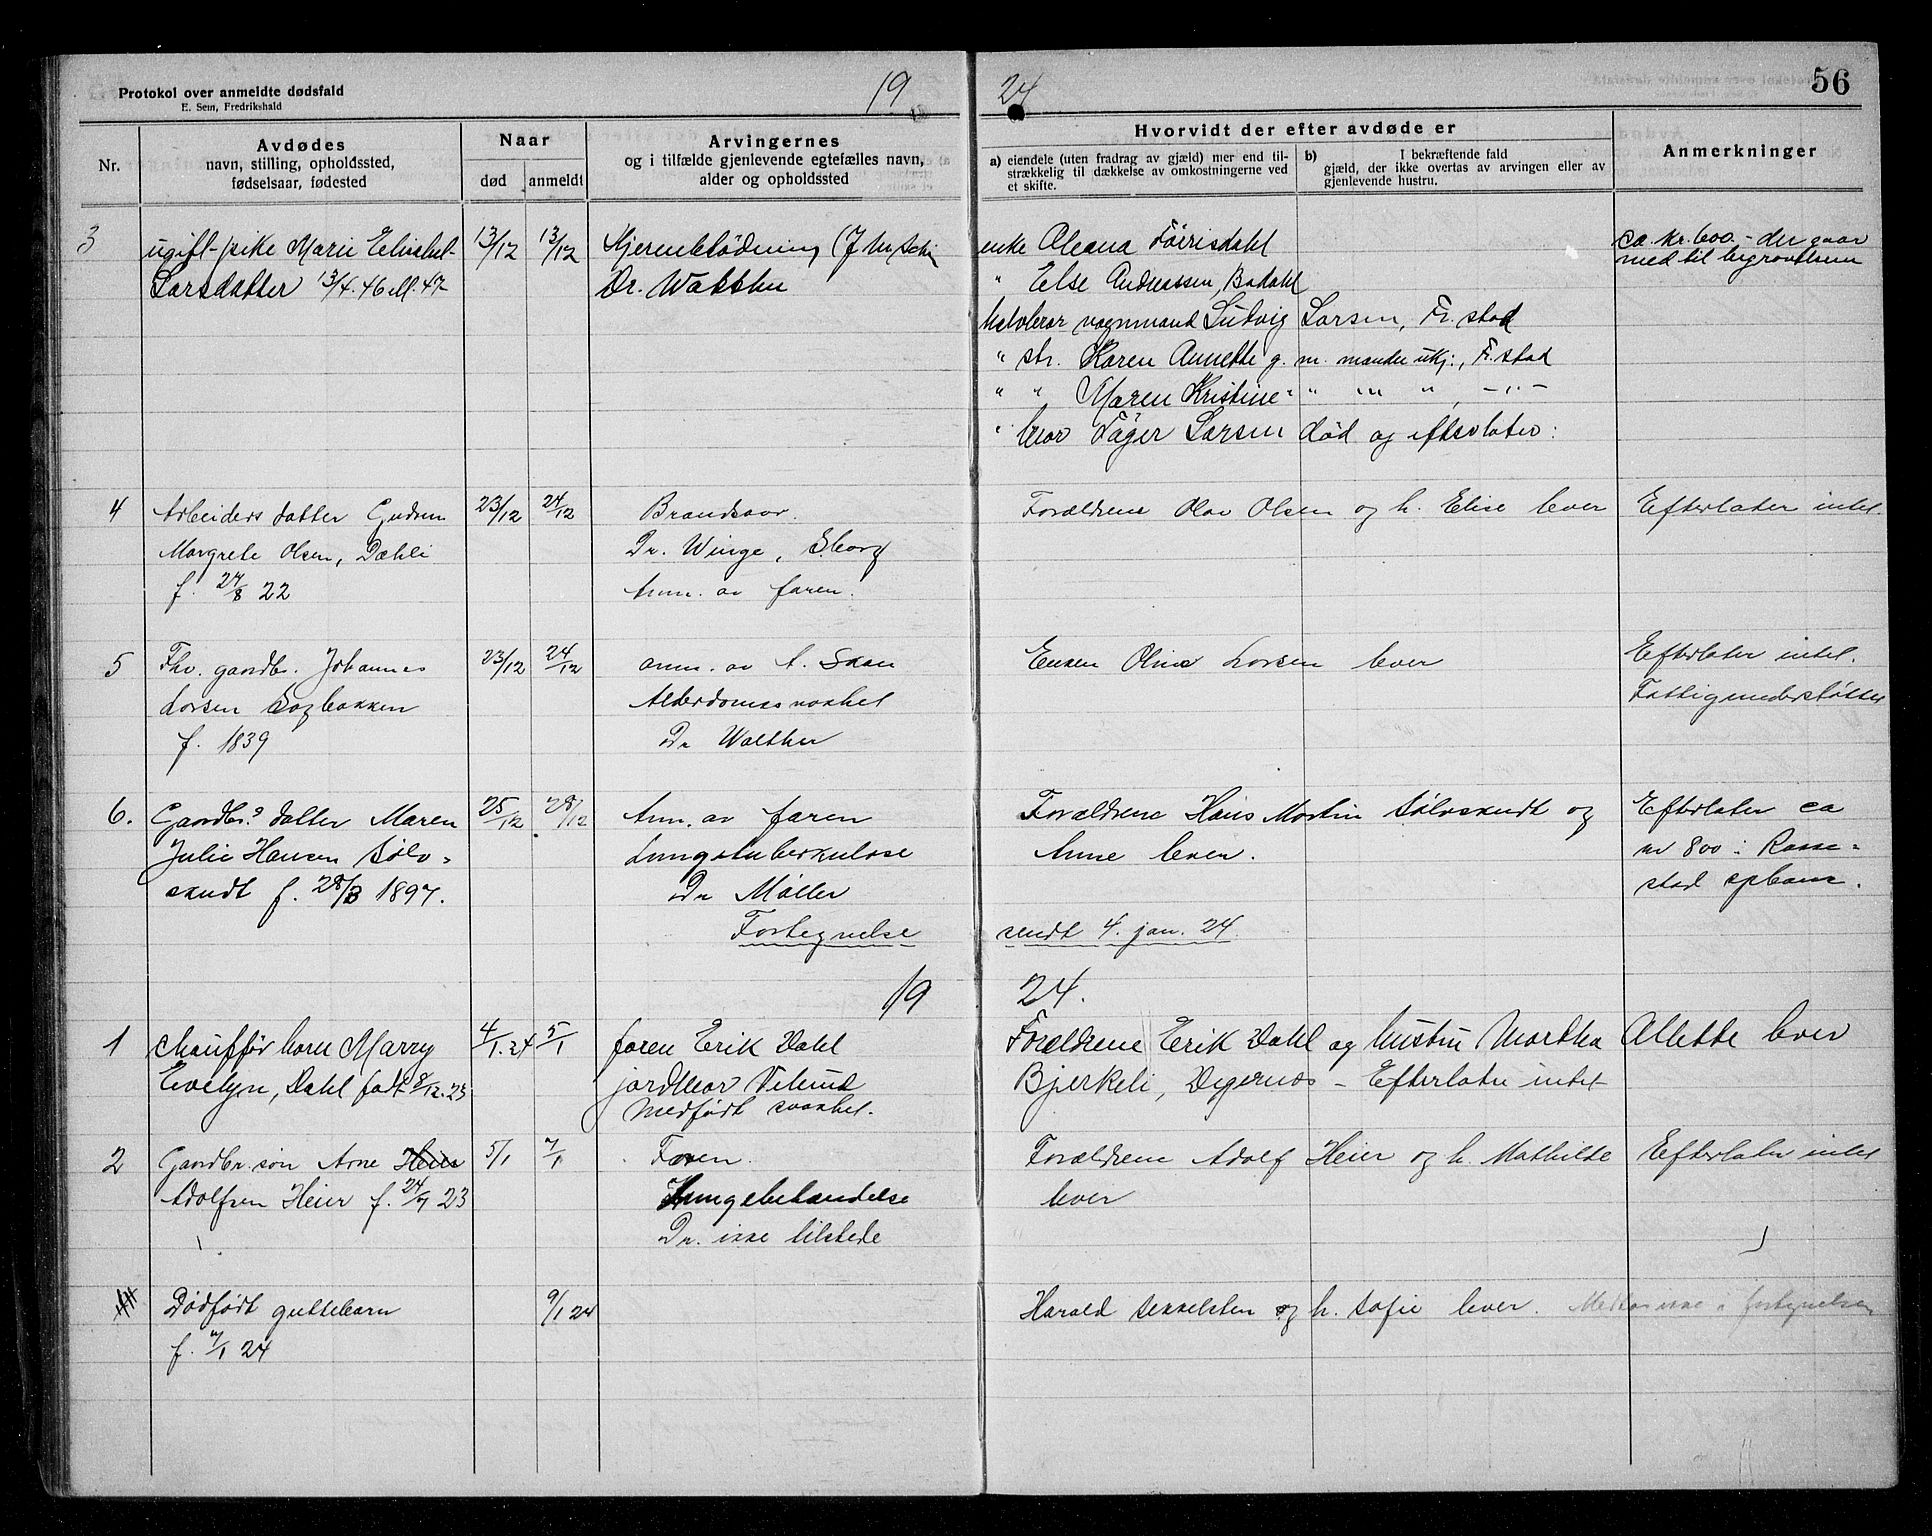 Protokol over anmeldte dødsfald
E. Sem, Fredrikshald
19 24
56
Nr.
Avdødes
navn, stilling, opholdssted,
fødselsaar, fødested
Naar
død
anmeldt
Arvingernes
og i tilfælde gjenlevende egtefælles navn,
alder og opholdssted
Hvorvidt der efter avdøde er
a) eiendele (uten fradrag av gjæld) mer end til-
strækkelig til dækkelse av omkostningerne ved
et skifte.
b) I bekræftende fald
gjæld, der ikke overtas av arvingen eller av
gjenlevende hustru.
Anmerkninger
3
ugift pike Marie Elisabet
Larsdatter 13/4. 46 ell. 47
13/12
13/12
Hjerneblødning
Dr. Walther
enke Oleana
" Else Andreassen, Bakahl
halvbror vognmand Ludvig Larsen, Fr.stad
" str. Karen Annette g. m. mander ukj:, Fr.stad
" " Maren Kristine " " " " , - " -
" bror Larsen død og efterlater:
ca. kr. 600.- der gaar
med til begravelsen
4
Arbeiders datter Gudrun
Margrete Olsen, Dæhli
f. 24/8 22
23/12
24/12
Brandsaar.
Dr. Winge, S.borg
Anm. av faren.
Forældrene Olav Olsen og h. Elise lever
Efterlater intet.
5
Fhv. gaardbr. Johannes
Larsen Sagbakken
f. 1839
23/12
24/12
anm. av A. Skau
Alderdomssvakhet
Dr Walther
Enken Oline Larsen lever
Efterlater intet.
Fattigunderstøttet
6.
Gaardbr.s datter Maren
Julie Hansen Sølv-
skudt f. 28/3 1897.
25/12
28/12
Anm. av faren
Lungetuberkulose
Dr Møller
Fortegnelse
Forældrene Hans Martin Sølvskudt og
Anne lever.
sendt 4. jan. 24.
Efterlater ca
kr 800 i Rakke-
stad spbank.
19 24.
1
chauffør barn Marry
Evelyn, Dahl født 8/12. 23
4/1. 24
5/1
faren Erik Dahl
jordmor
medfødt svakhet.
Forældrene Erik Dahl og hustru Martha Alette lever
Bjerkeli, Degernes - Efterlater intet
2
Gaardbr. søn Arne Heier
Adolfsen Heier f. 24/9 23
5/1
7/1
Faren.
Lungebetændelse
Dr. ikke tilstede
Forældrene Adolf Heier og h. Mathilde
lever
Efterlater intet
Dødfødt guttebarn
f. 7/1 24
9/1 24
Harald og h. Sofie lever. Medtas ikke i fortegnelsen